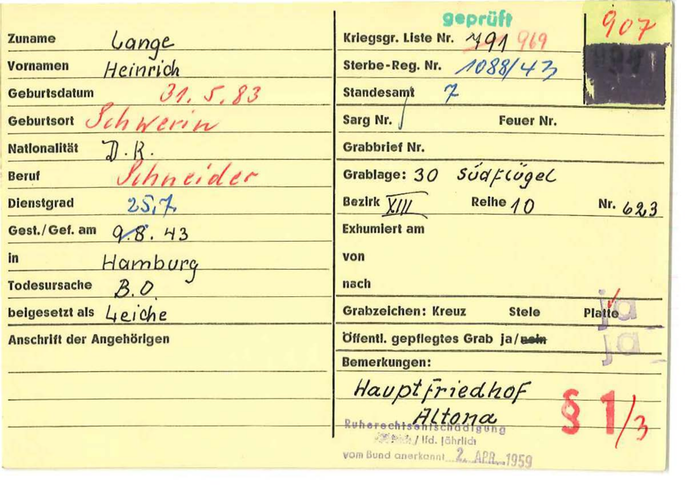 geprüft
907
Zuname Lange
Vornamen Heinrich
Geburtsdatum 31.5.83
Geburtsort Schwerin
Nationalität D.R.
Beruf Schneider
Dienstgrad
25.7.
Gest./Gef. am 9.8.43
in Hamburg
Todesursache B.O
beigesetzt als Leiche
Anschrift der Angehörigen
Kriegsgr. Liste Nr. 791 969
Sterbe-Reg. Nr. 1088/43
Standesamt 7
Sarg Nr. Feuer Nr.
Grabbrief Nr.
Grablage: 30 Südflügel
Bezirk XIII Reihe 10 Nr. 623
Exhumiert am
von
nach
ja
Grabzeichen: Kreuz Stele Platte
Öffentl. gepflegtes Grab ja/nein ja
Bemerkungen:
Hauptfriedhof
Altona
§ 1/3
Ruherechtsentschädigung
/ lfd. jährlich
vom Bund anerkannt 2. APR. 1959